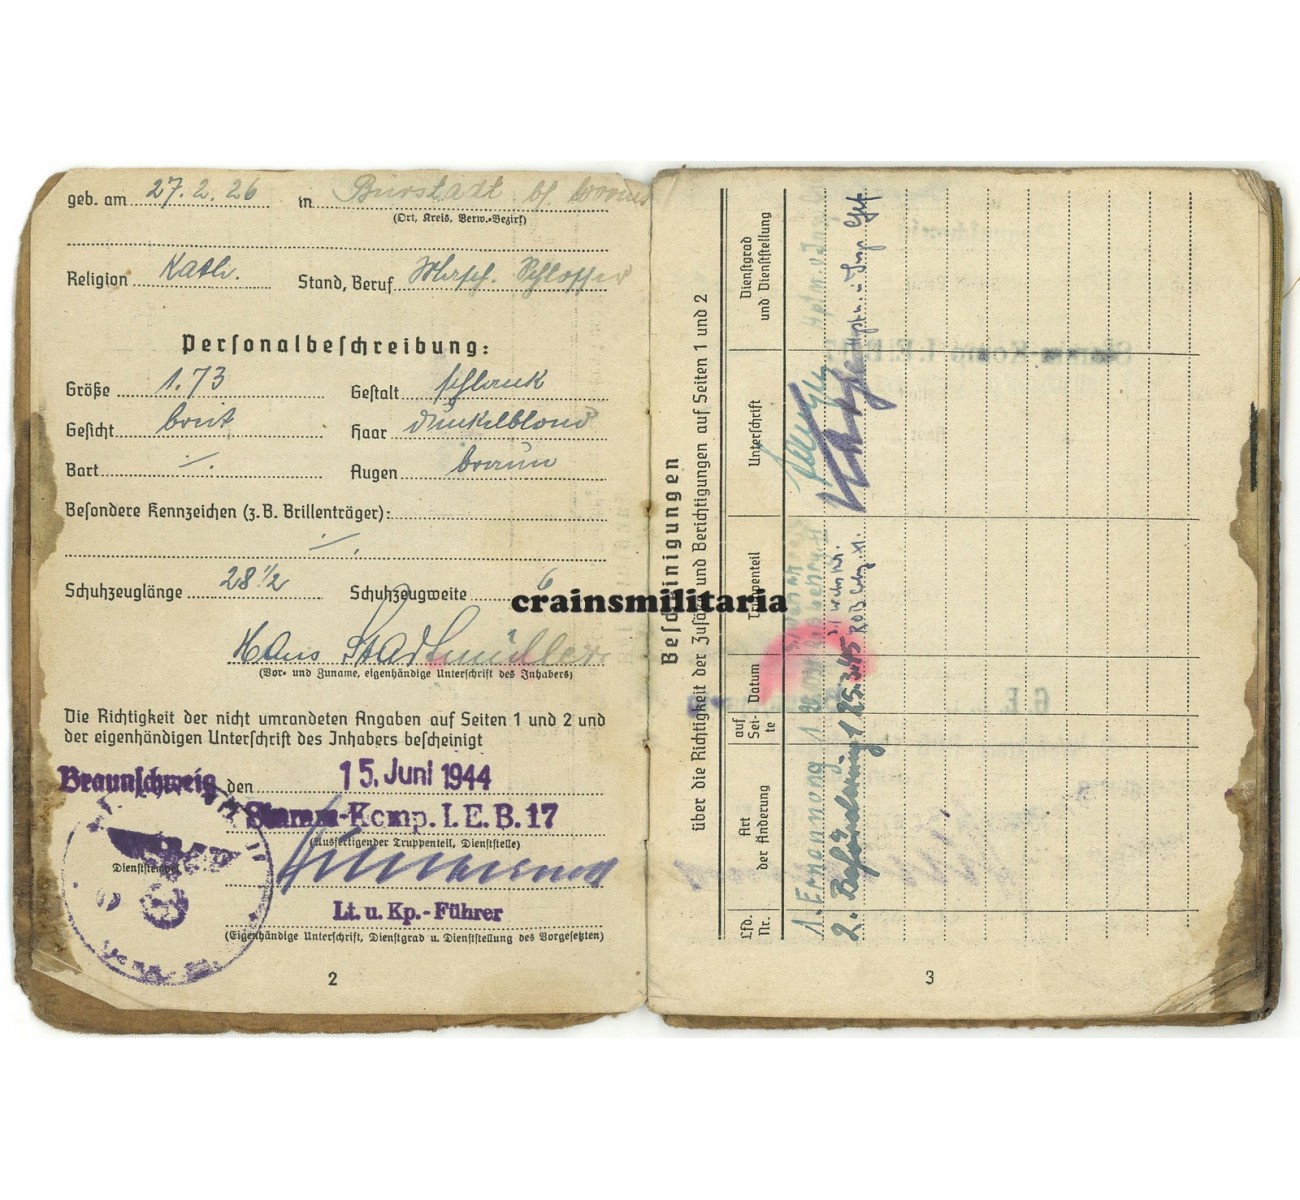 geb. am 27.2.26 in Bürstadt bf. Worms
(Ort, Kreis, Verw.-Bezirk)
Religion Kath. Stand, Beruf Masch. Schlosser
Personalbeschreibung:
Größe 1.73 Gestalt schlank
Gesicht breit Haar dunkelblond
Bart ./. Augen braun
Besondere Kennzeichen (z.B. Brillenträger):
./.
Schuhzeuglänge 28 1/2 Schuhzeugweite 6
Hans Stadtmüller
(Vor- und Zuname, eigenhändige Unterschrift des Inhabers)
Die Richtigkeit der nicht umrandeten Angaben auf Seiten 1 und 2 und
der eigenhändigen Unterschrift des Inhabers bescheinigt
Braunschweig den 15. Juni 1944
Stamm-Komp. I.E.B. 17
(Ausfertigender Truppenteil, Dienststelle)
Dienststempel
Lt. u. Kp.-Führer
(Eigenhändige Unterschrift, Dienstgrad u. Dienststellung des Vorgesetzten)
2
crainsmilitaria
Bescheinigungen
über die Richtigkeit der Zusätze und Berichtigungen auf Seiten 1 und 2
Lfd. Nr. Art der Änderung auf Seite Datum Truppenteil Unterschrift Dienstgrad und Dienststellung
1. Ernennung 1
2. Beförderung 1 25.3.45
3